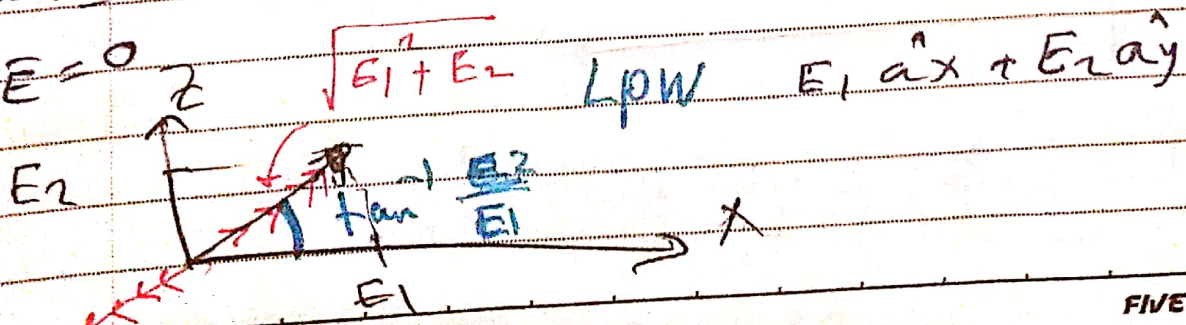 E = 0
Z
√E1² + E2
LPW
E1 âx + E2 ây
E2
tan⁻¹ E2/E1
X
E1
FIVE